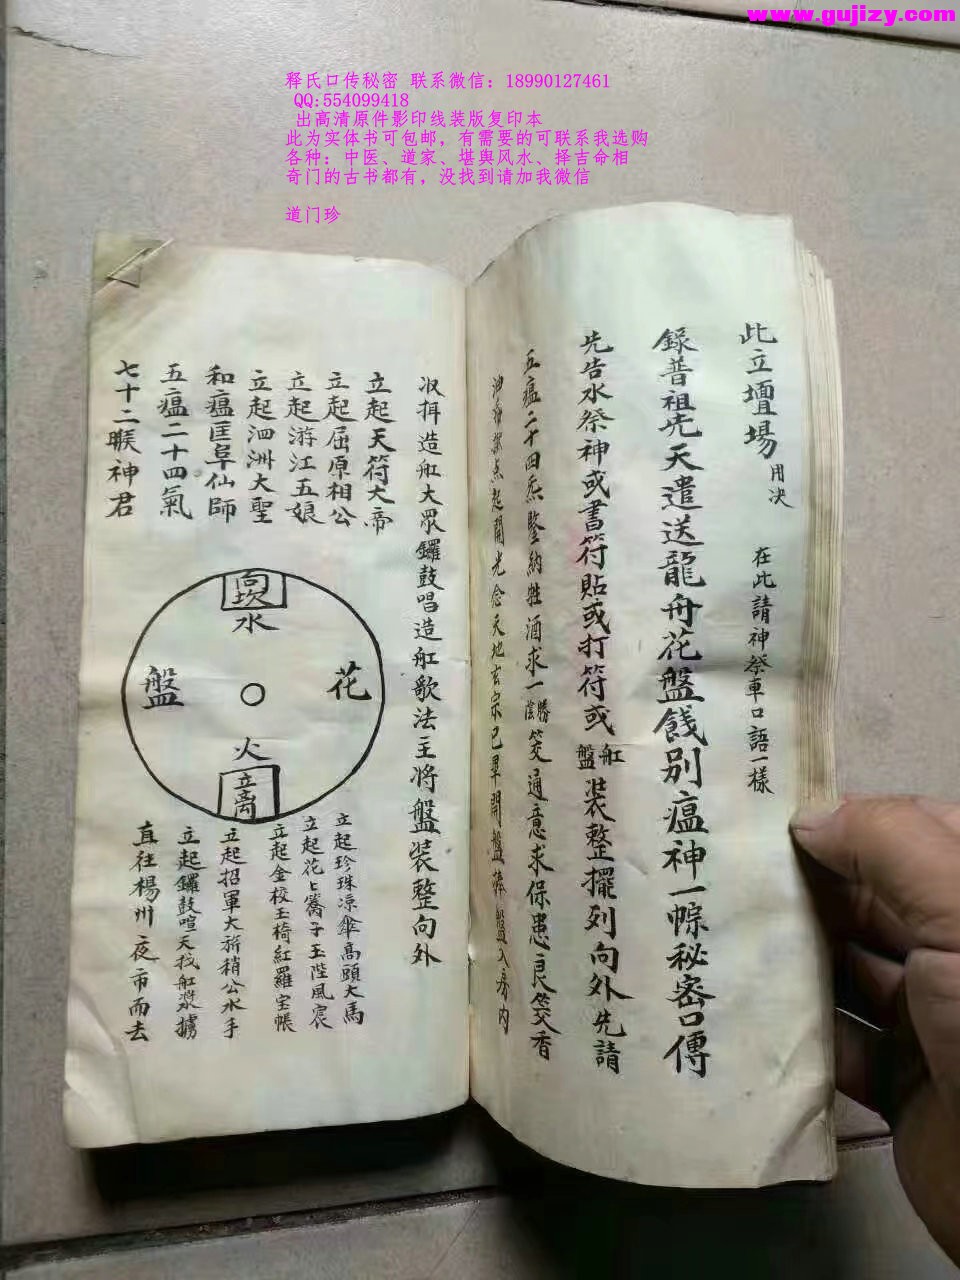 www.gujizy.com
释氏口传秘密 联系微信：18990127461
QQ:554099418
出高清原件影印线装版复印本
此为实体书可包邮，有需要的可联系我选购
各种：中医、道家、堪舆风水、择吉命相
奇门的古书都有，没找到请加我微信
道门珍
此立壇場用决 在此請神祭車口語一樣
錄普祖先天遣送龍舟花盤餞別瘟神一宗秘密口傳
先告水祭神或書符貼或打符或舡盤裝整擺列向外先請
五瘟二十四炁鑒納牲酒求一勝陰筊通意求保患良筊香
油 点起開光念天地玄宗已畢開盤捧盤入房内
造舡大眾鑼鼓唱造舡歌法主將盤裝整向外
立起天符大帝
立起屈原相公
立起游江五娘
立起泗洲大聖
和瘟匡阜仙師
五瘟二十四氣
七十二瘊神君
向坎
水
花
盤
火
立离
立起珍珠凉傘高頭大馬
立起花喬子玉陛風宸
立起金校玉椅紅羅宝帳
立起招軍大 稍公水手
立起鑼鼓喧天找舡漿擄
直往楊州夜市而去